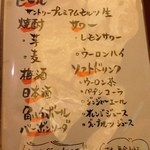 ビール
サントリープレミアムモルツ 生
焼酎
・芋
・麦
梅酒
日本酒
角ハイボール
バーボンソーダ
サワー
・レモンサワー
・ウーロンハイ
ソフトドリンク
・ウーロン茶
・ジンジャーエール
・オレンジジュース
・グレープフルーツジュース